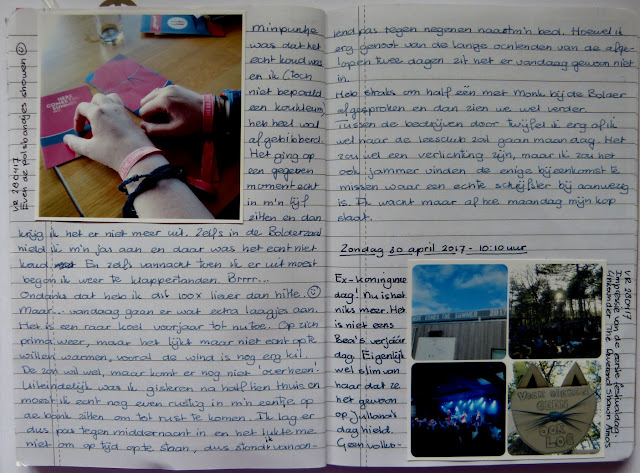 VR 280417
Even de polsbandjes showen
HERE
COMES
SUMMER
minpuntje
was dat het
echt koud was
en ik (toch
niet bepaald
een koukleum)
heb heel wat
afgebibberd.
Het ging op
een gegeven
moment echt
in m'n lijf
zitten en dan
krijg ik het er niet meer uit. Zelfs in de Bolderzaal
hield ik m'n jas aan en daar was het echt niet
koud. En zelfs vannacht toen ik er uit moest
begon ik weer te klappertanden. Brrr...
Ondanks dat heb ik dit 100x liever dan hitte.
Maar... vandaag gaan er wat extra laagjes aan.
Het is een raar koel voorjaar tot nu toe. Op zich
prima weer, maar het lijkt maar niet echt op te
willen warmen, vooral de wind is nog erg kil.
De zon wil wel, maar komt er nog niet 'overheen'.
Uiteindelijk was ik gisteren na half tien thuis en
moest ik echt nog even rustig in m'n eentje op
de bank zitten om tot rust te komen. Ik lag er
dus pas tegen middernacht in en het lukte me
niet om op tijd op te staan, dus stond ik vanoch-
tend pas tegen negenen naast m'n bed. Hoewel ik
erg genoot van de lange ochtenden van de afge-
lopen twee dagen zit het er vandaag gewoon niet
in.
Heb straks om half één met Monk bij de Bolder
afgesproken en dan zien we wel verder.
Tussen de bedrijven door twijfel ik erg of ik
wel naar de leesclub zal gaan maandag. Het
zou wel een verlichting zijn, maar ik zou het
ook jammer vinden de enige bijeenkomst te
missen waar een echte schrijfster bij aanwezig
is. Ik wacht maar af hoe maandag mijn kop
staat.
Zondag 30 april 2017 - 10:10 uur
Ex-koninginne
dag! Nu is het
niks meer. Het
is niet eens
Bea's verjaar
dag. Eigenlijk
wel slim van
haar dat ze
het gewoon
op Juliana's
dag hield.
Geen volks-
VR 280417
Impressie van de eerste festivaldag.
Grasmaaier, The Reverend Shawn Amos
HERE COMES THE SUMMER
VOOR DIEREN
GEEN
OOR
LOG